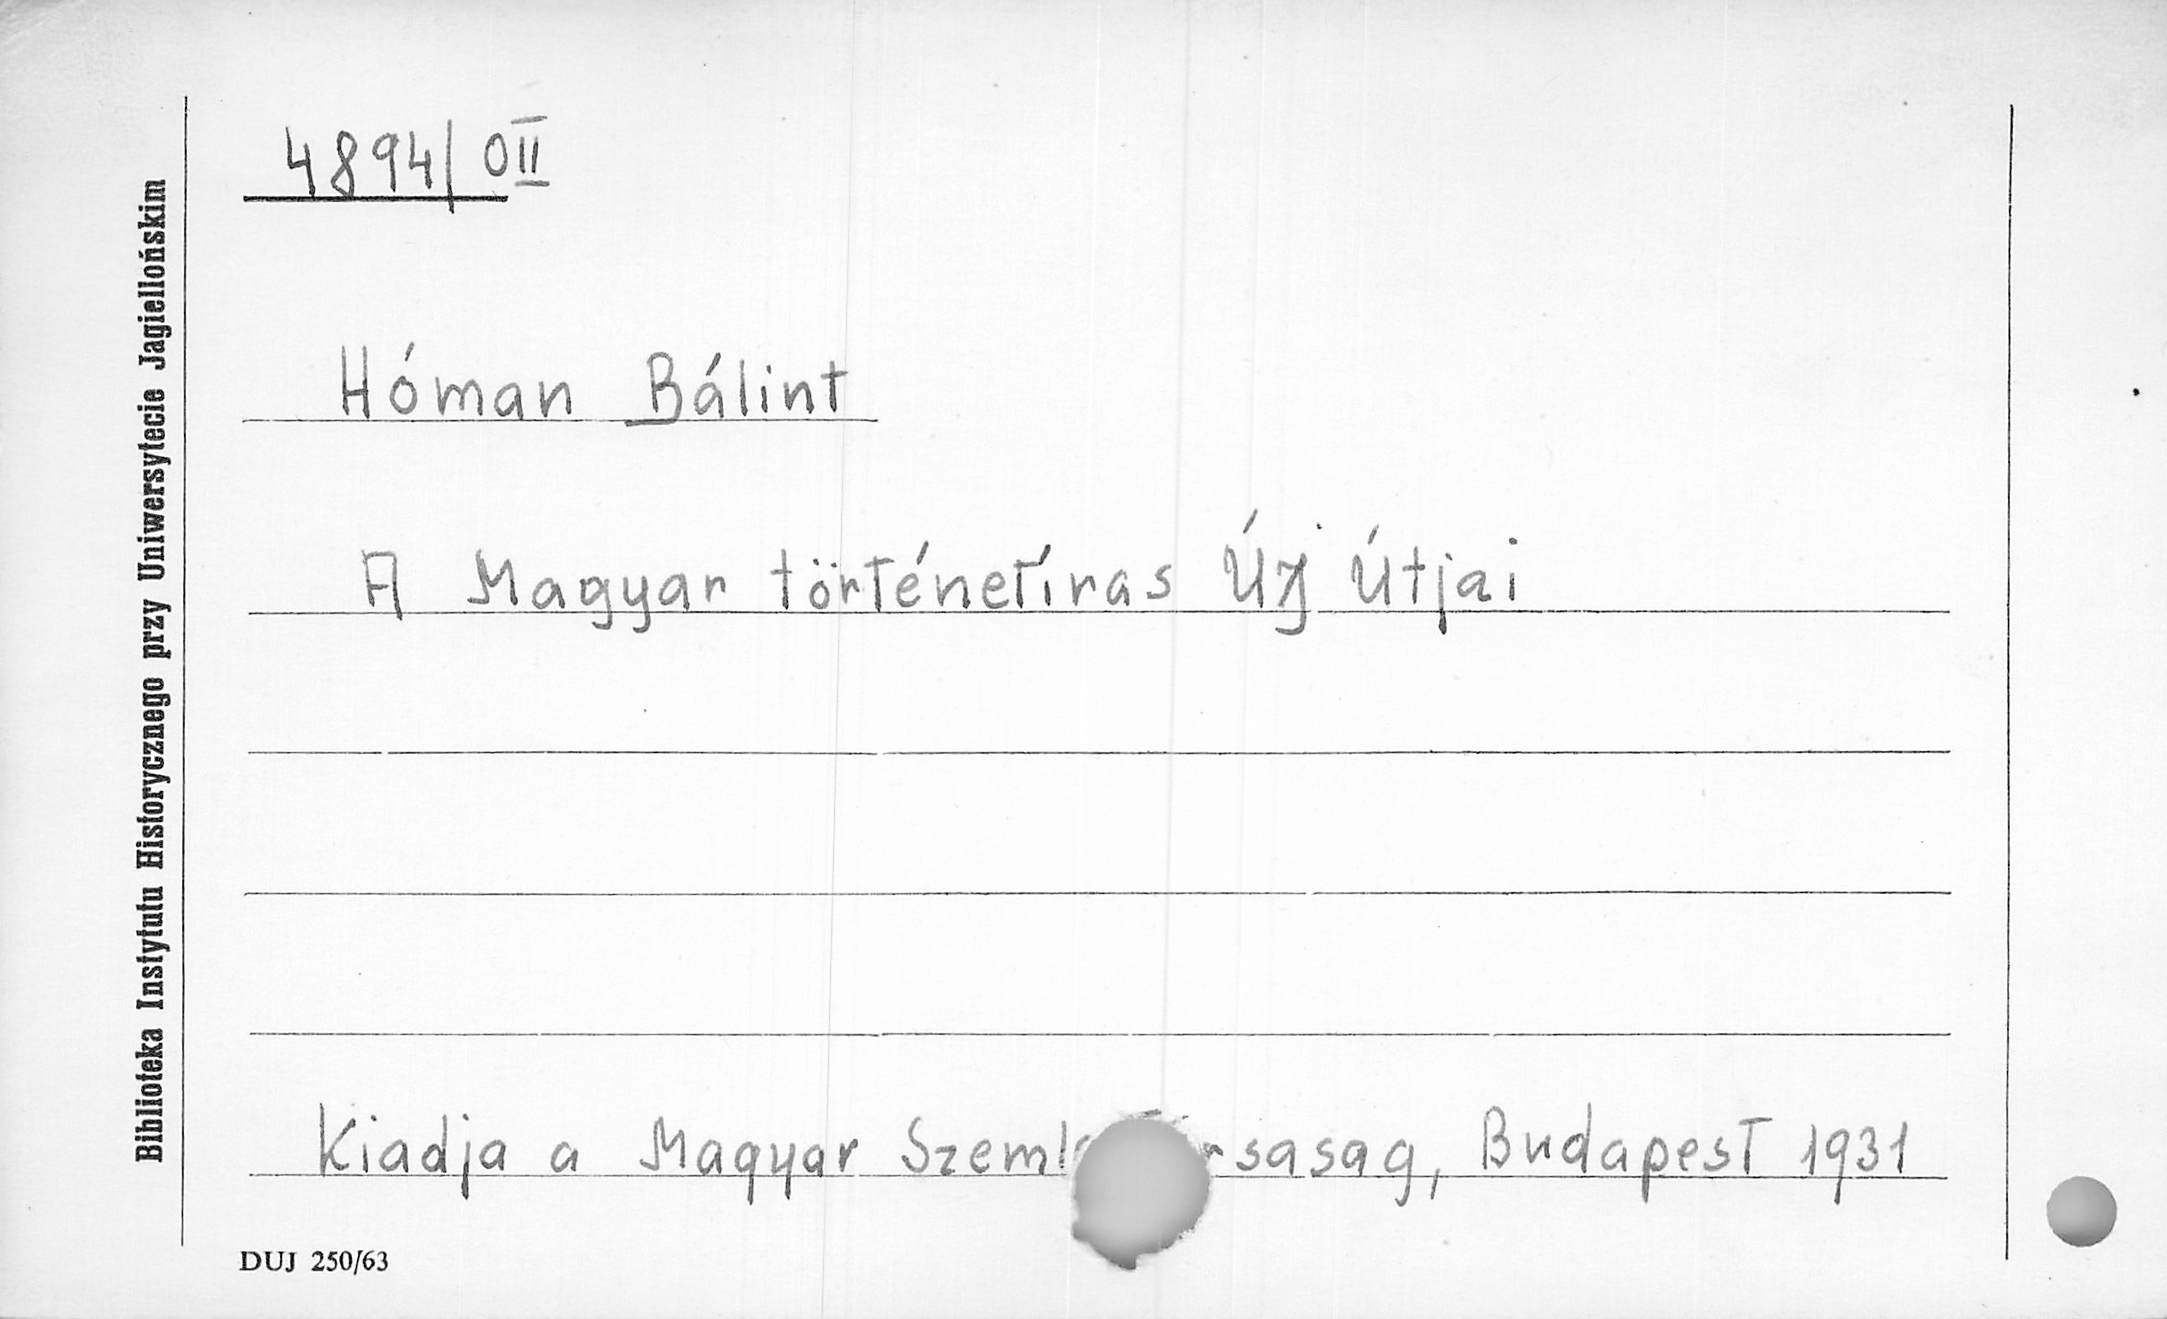 4894/OII
Hóman Bálint
A Magyar történetíras Új Útjai
Kiadja a Magyar Budapest 1931
DUJ 250/63
Biblioteka Instytutu Historycznego przy Uniwersytecie Jagiellońskim